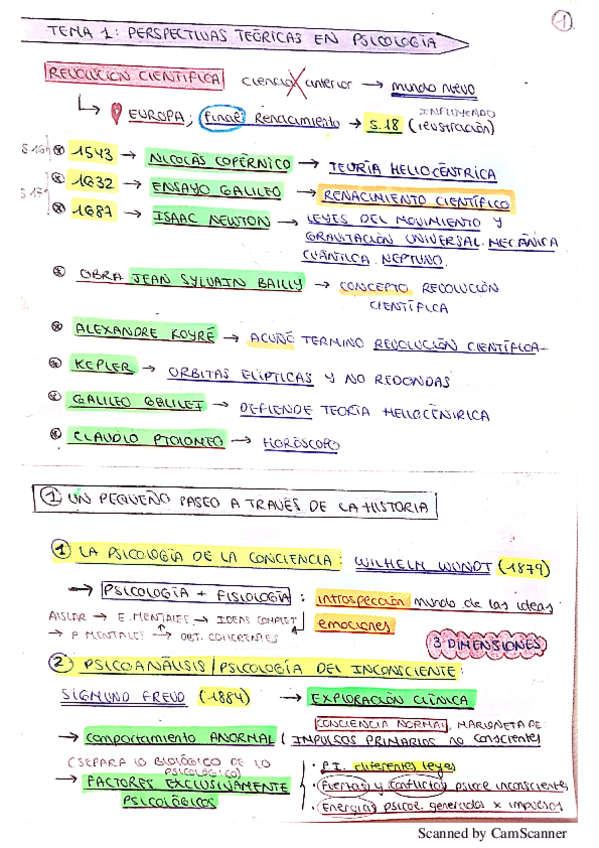 1
TEMA 1: PERSPECTIVAS TEÓRICAS EN PSICOLOGÍA
REVOLUCIÓN CIENTÍFICA ciencia X anterior → mundo nuevo
↳ EUROPA; final Renacimiento → S.18 (ilustración)
INFLUYENDO
S.16 1543 → NICOLÁS COPÉRNICO → TEORÍA HELIOCÉNTRICA
S.17 1632 → ENSAYO GALILEO → RENACIMIENTO CIENTÍFICO
1687 → ISAAC NEWTON → LEYES DEL MOVIMIENTO Y
GRAVITACIÓN UNIVERSAL. MECÁNICA
CUÁNTICA. NEPTUNO.
OBRA JEAN SYLVAIN BAILLY → CONCEPTO REVOLUCIÓN
CIENTÍFICA
ALEXANDRE KOYRÉ → ACUÑÓ TERMINO REVOLUCIÓN CIENTÍFICA
KEPLER → ORBITAS ELÍPTICAS Y NO REDONDAS
GALILEO GALILEI → DEFIENDE TEORÍA HELIOCÉNTRICA
CLAUDIO PTOLOMEO → HORÓSCOPO
1 UN PEQUEÑO PASEO A TRAVÉS DE LA HISTORIA
1 LA PSICOLOGÍA DE LA CONCIENCIA: WILHELM WUNDT (1879)
→ PSICOLOGÍA + FISIOLOGÍA: introspección mundo de las ideas
AISLAR → E. MENTALES → IDEAS COMPLET emociones
→ P. MENTALES → OBT. COHERENTES
3 DIMENSIONES
2 PSICOANÁLISIS / PSICOLOGÍA DEL INCONSCIENTE:
SIGMUND FREUD (1884) → EXPLORACIÓN CLÍNICA
CONCIENCIA NORMAL, MARIONETA DE
→ comportamiento ANORMAL IMPULSOS PRIMARIOS no conscientes
(SEPARA lo BIOLÓGICO DE LO
PSICOLÓGICO)
→ FACTORES EXCLUSIVAMENTE
PSICOLÓGICOS
· P.I. diferentes leyes
· Fuerzas y conflictos psicoe inconsciente
· Energía psicoe. generados x impulsos
Scanned by CamScanner